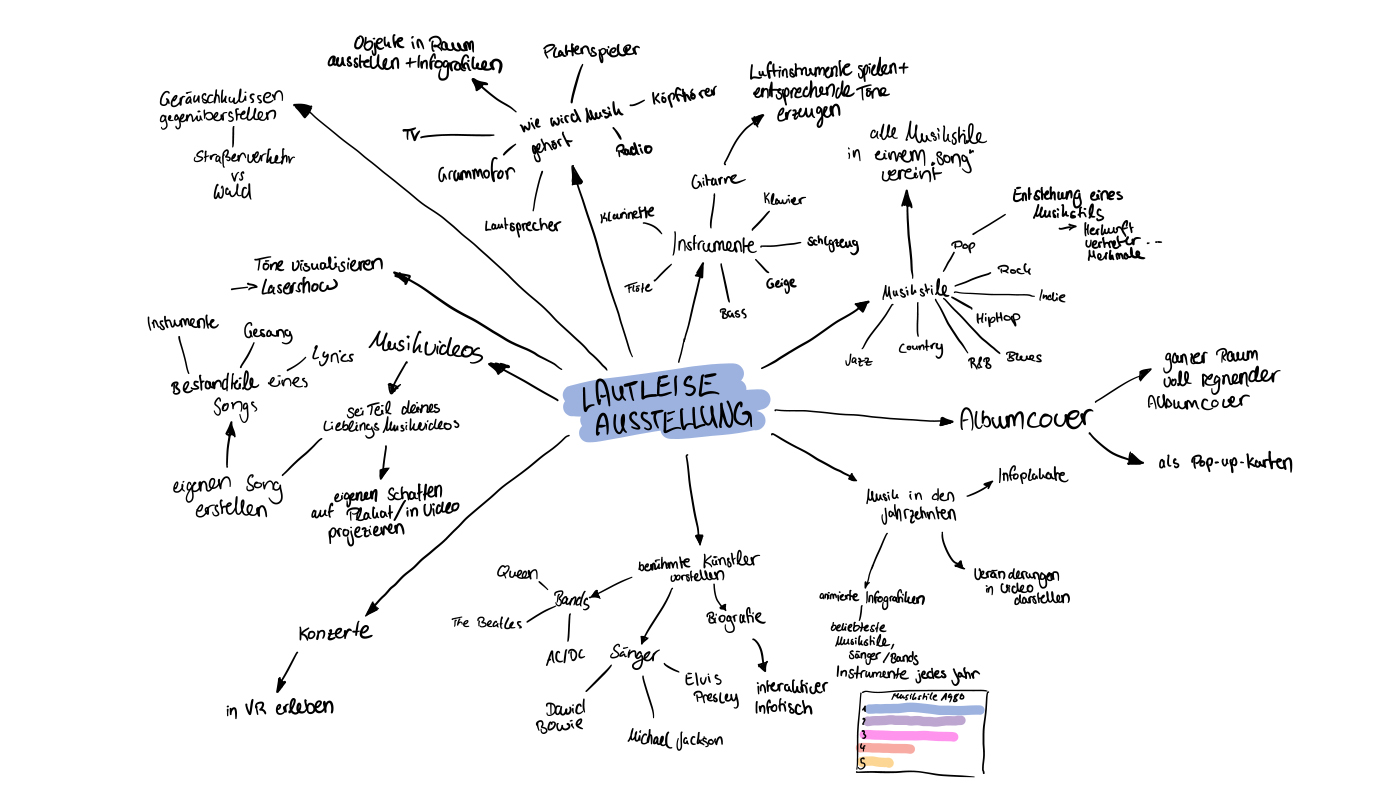 Objekte in Raum
ausstellen + Infografiken
Plattenspieler
Köpfhörer
wie wird Musik
gehört
TV
Radio
Grammofon
Lautsprecher
Geräuschkulissen
gegenüberstellen
Straßenverkehr
vs
Wald
Luftinstrumente spielen +
entsprechende Töne
erzeugen
Gitarre
Klarinette
Klavier
Instrumente
Schlgzeug
Flöte
Geige
Bass
alle Musikstile
in einem "Song"
vereint
Entstehung eines
Musikstils
→ Herkunft
vertreter ...
Merkmale
Pop
Rock
Musikstile
Indie
HipHop
Jazz
Country
R&B
Blues
Töne visualisieren
→ Lasershow
Instumente
Gesang
Lyrics
Bestandteile eines
Songs
eigenen Song
erstellen
Musikvideos
sei Teil deines
Lieblings Musikvideos
eigenen Schatten
auf Plakat/in Video
projezieren
LAUTLEISE
AUSSTELLUNG
Albumcover
ganzer Raum
voll regnender
Albumcover
als Pop-up-Karten
Musik in den
Jahrzehnten
Infoplakate
Veränderungen
in Video
darstellen
animierte Infografiken
beliebteste
Musikstile,
Sänger/Bands
Instrumente jedes Jahr
Musikstile 1980
1
2
3
4
5
berühmte Künstler
vorstellen
Queen
Bands
The Beatles
AC/DC
Biografie
Sänger
Elvis
Presley
David
Bowie
Michael Jackson
interaktiver
Infotisch
Konzerte
in VR erleben